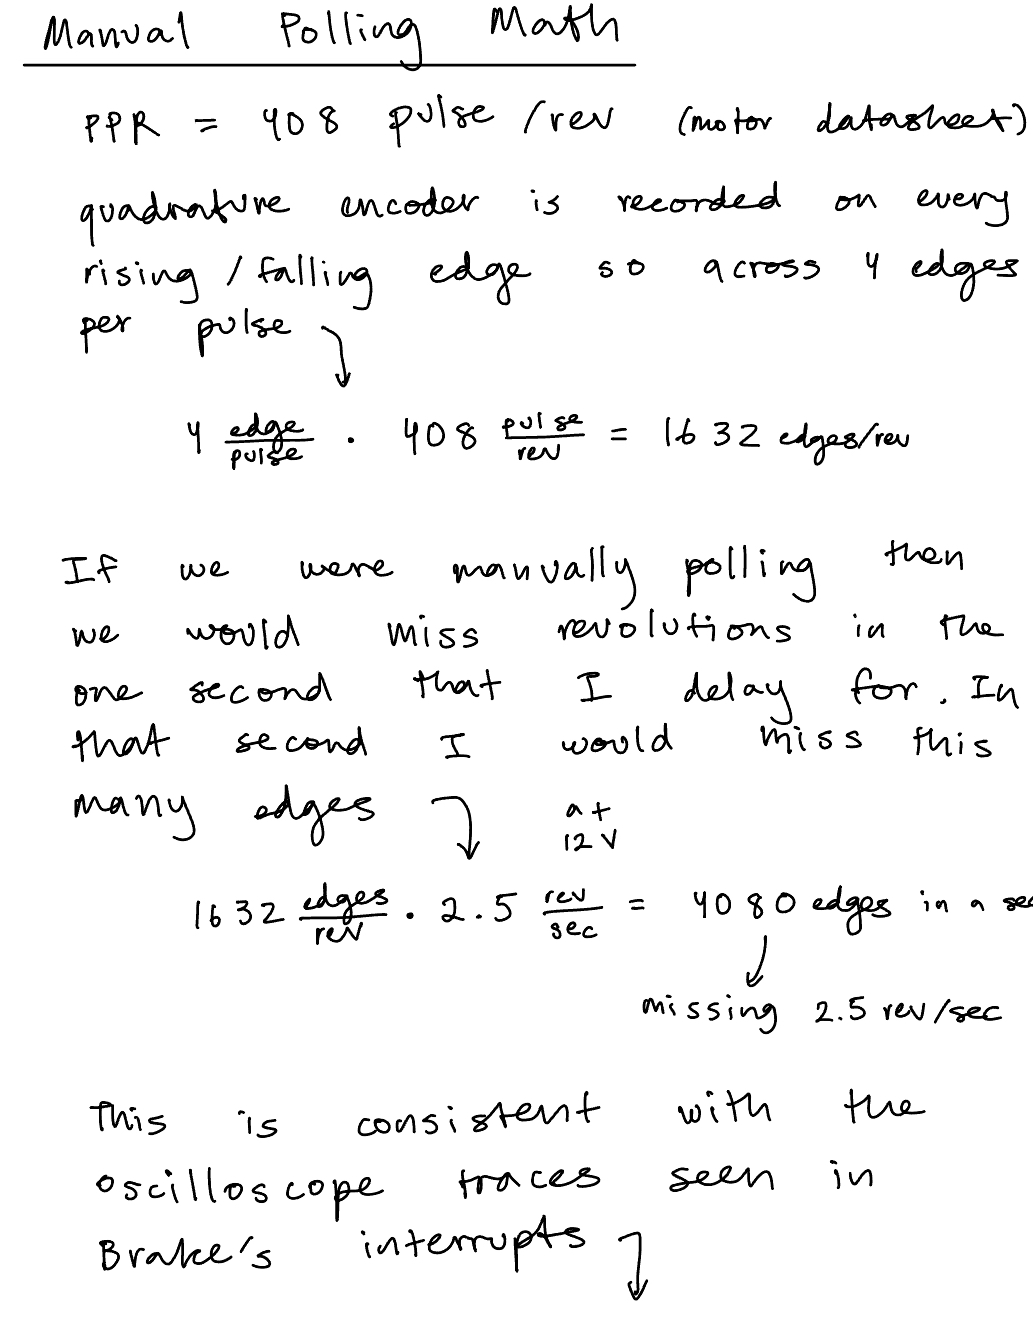 Manual Polling Math
PPR = 408 pulse/rev (motor datasheet)
quadrature encoder is recorded on every
rising/falling edge so across 4 edges
per pulse ↓
4 edge/pulse · 408 pulse/rev = 1632 edges/rev
If we were manually polling then
we would miss revolutions in the
one second that I delay for. In
that second I would miss this
many edges ↓ at
12 V
1632 edges/rev · 2.5 rev/sec = 4080 edges in a sec
↓
missing 2.5 rev/sec
This is consistent with the
oscilloscope traces seen in
Brake's interrupts ↓